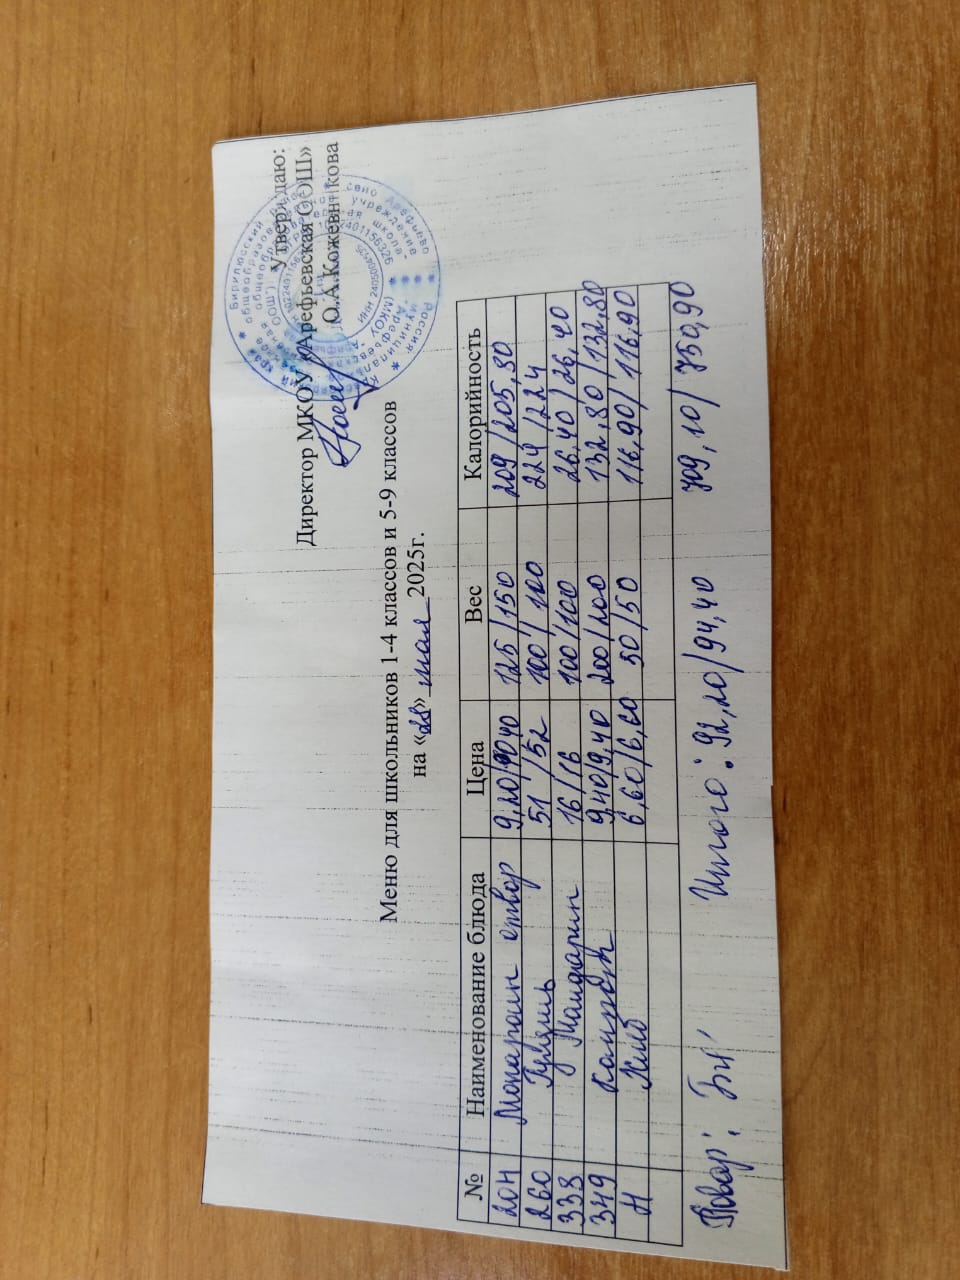 Утверждаю:
Директор МКОУ «Арефьевская ООШ»
О.А.Кожевникова
Меню для школьников 1-4 классов и 5-9 классов
на «28» мая 2025г.
№ Наименование блюда Цена Вес Калорийность
204 Макароны отвар 9,20/10,40 125/150 209/205,80
260 Гуляш 51/52 100/100 224/224
338 Мандарин 16/16 100/100 26,40/26,40
349 Компот 9,40/9,40 200/200 132,80/132,80
Н Хлеб 6,60/6,60 50/50 116,90/116,90
Повар: Итого: 92,20/94,40 709,10/750,90